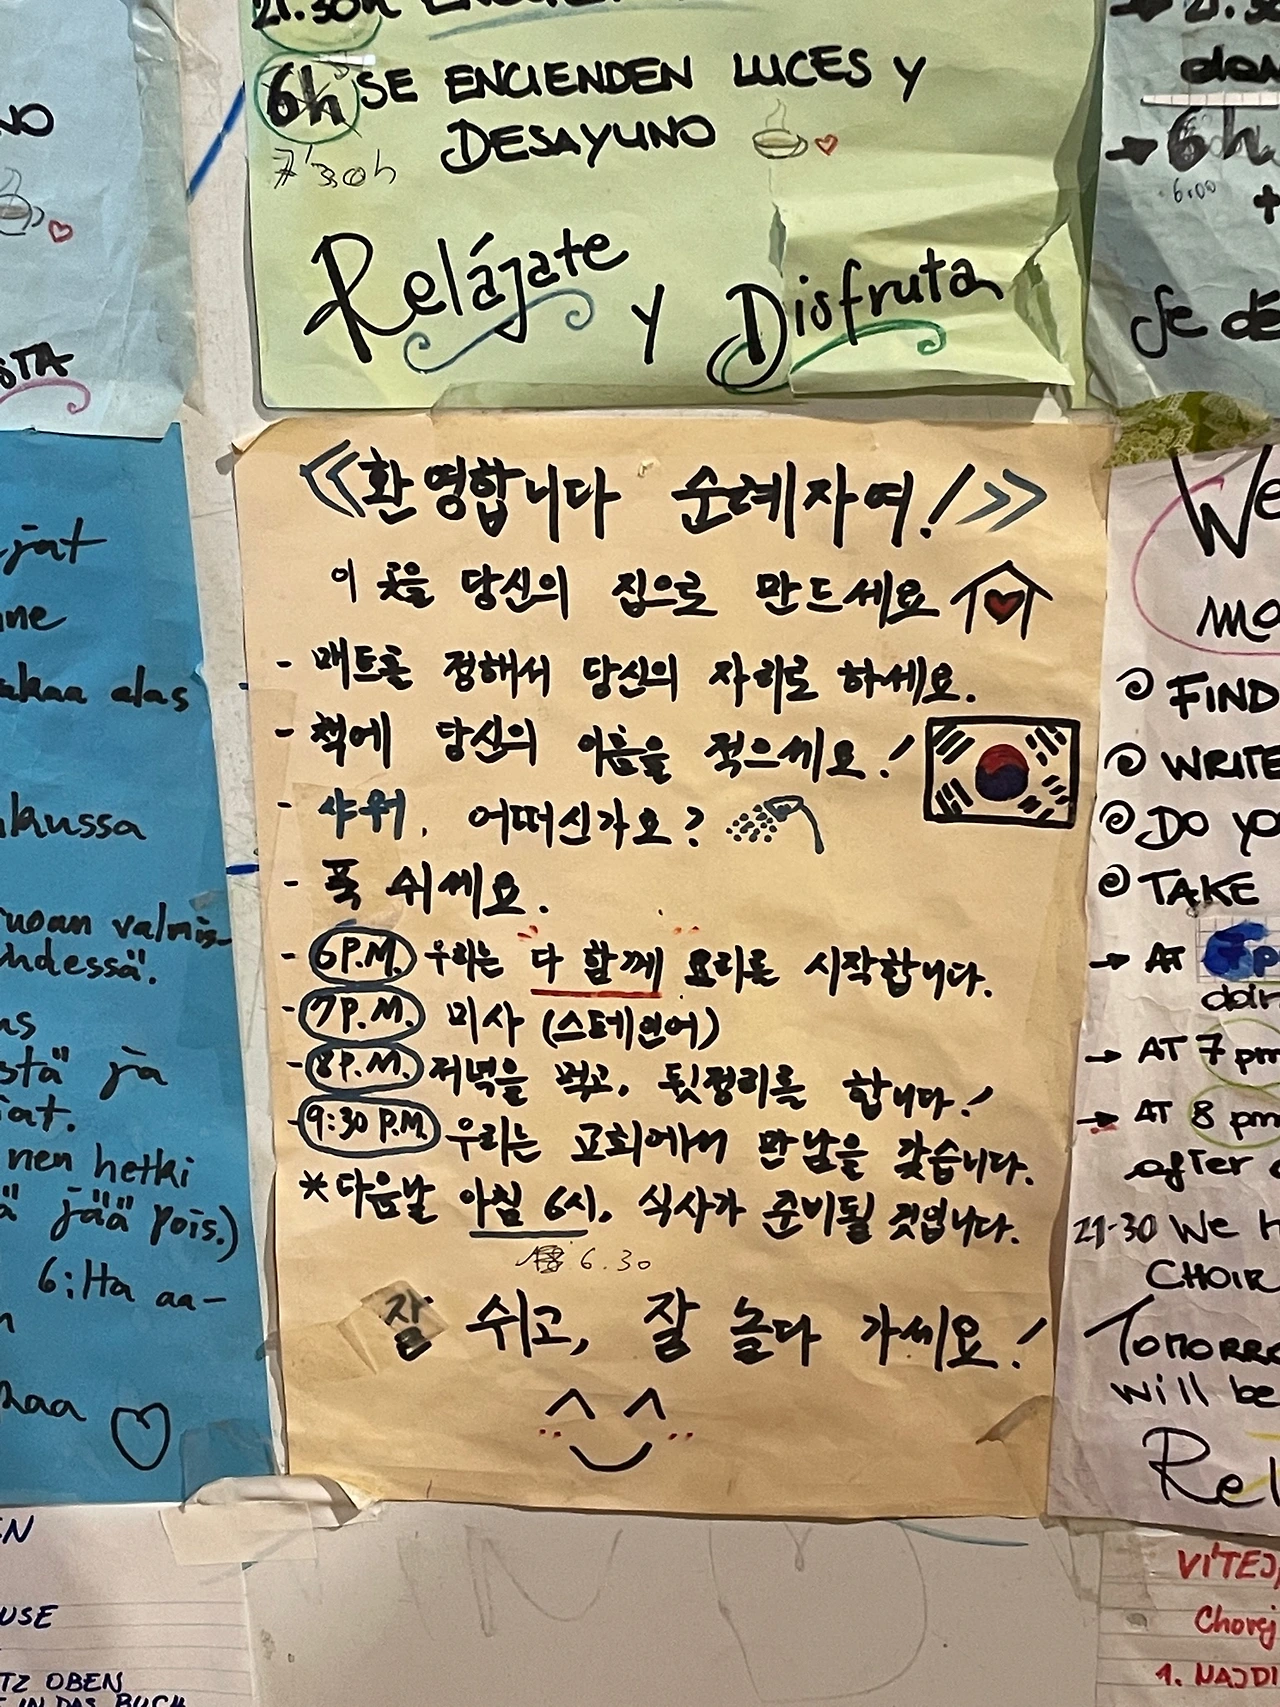 21:30h
6h SE ENCIENDEN LUCES Y
DESAYUNO
7'30h
Relájate y Disfruta
NO
STA
jat
akaa alas
kussa
ruoan valmis-
hdessä".
stä" ja
nen hetki
jää pois.)
6:lta aa-
<환영합니다 순례자여!>>
이 곳을 당신의 집으로 만드세요
- 매트를 정해서 당신의 자리로 하세요.
- 책에 당신의 이름을 적으세요!
- 샤워, 어떠신가요?
- 푹 쉬세요.
- 6P.M. 우리는 다 함께 요리를 시작합니다.
- 7P.M. 미사 (스페인어)
- 8P.M. 저녁을 먹고, 뒷정리를 합니다!
- 9:30 P.M. 우리는 교회에서 만남을 갖습니다.
*다음날 아침 6시, 식사가 준비될 것입니다.
6.30
잘 쉬고, 잘 놀다 가세요!
6h
6:00
+
Se dé
We
FIND
WRITE
DO YO
TAKE
→ AT 6p
→ AT 7 pm
→ AT 8 pm
after
21-30 We H
CHOIR
TOMORRO
will be
Rel
USE
TZ OBEN
E IN DAS BUCH
VÍTEJ
1. NAJDI